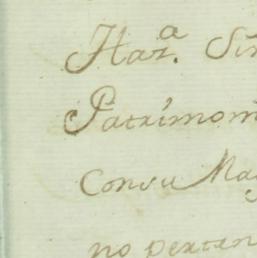 Haz.ª Sin
Patrimon
Consu Mag
no perten